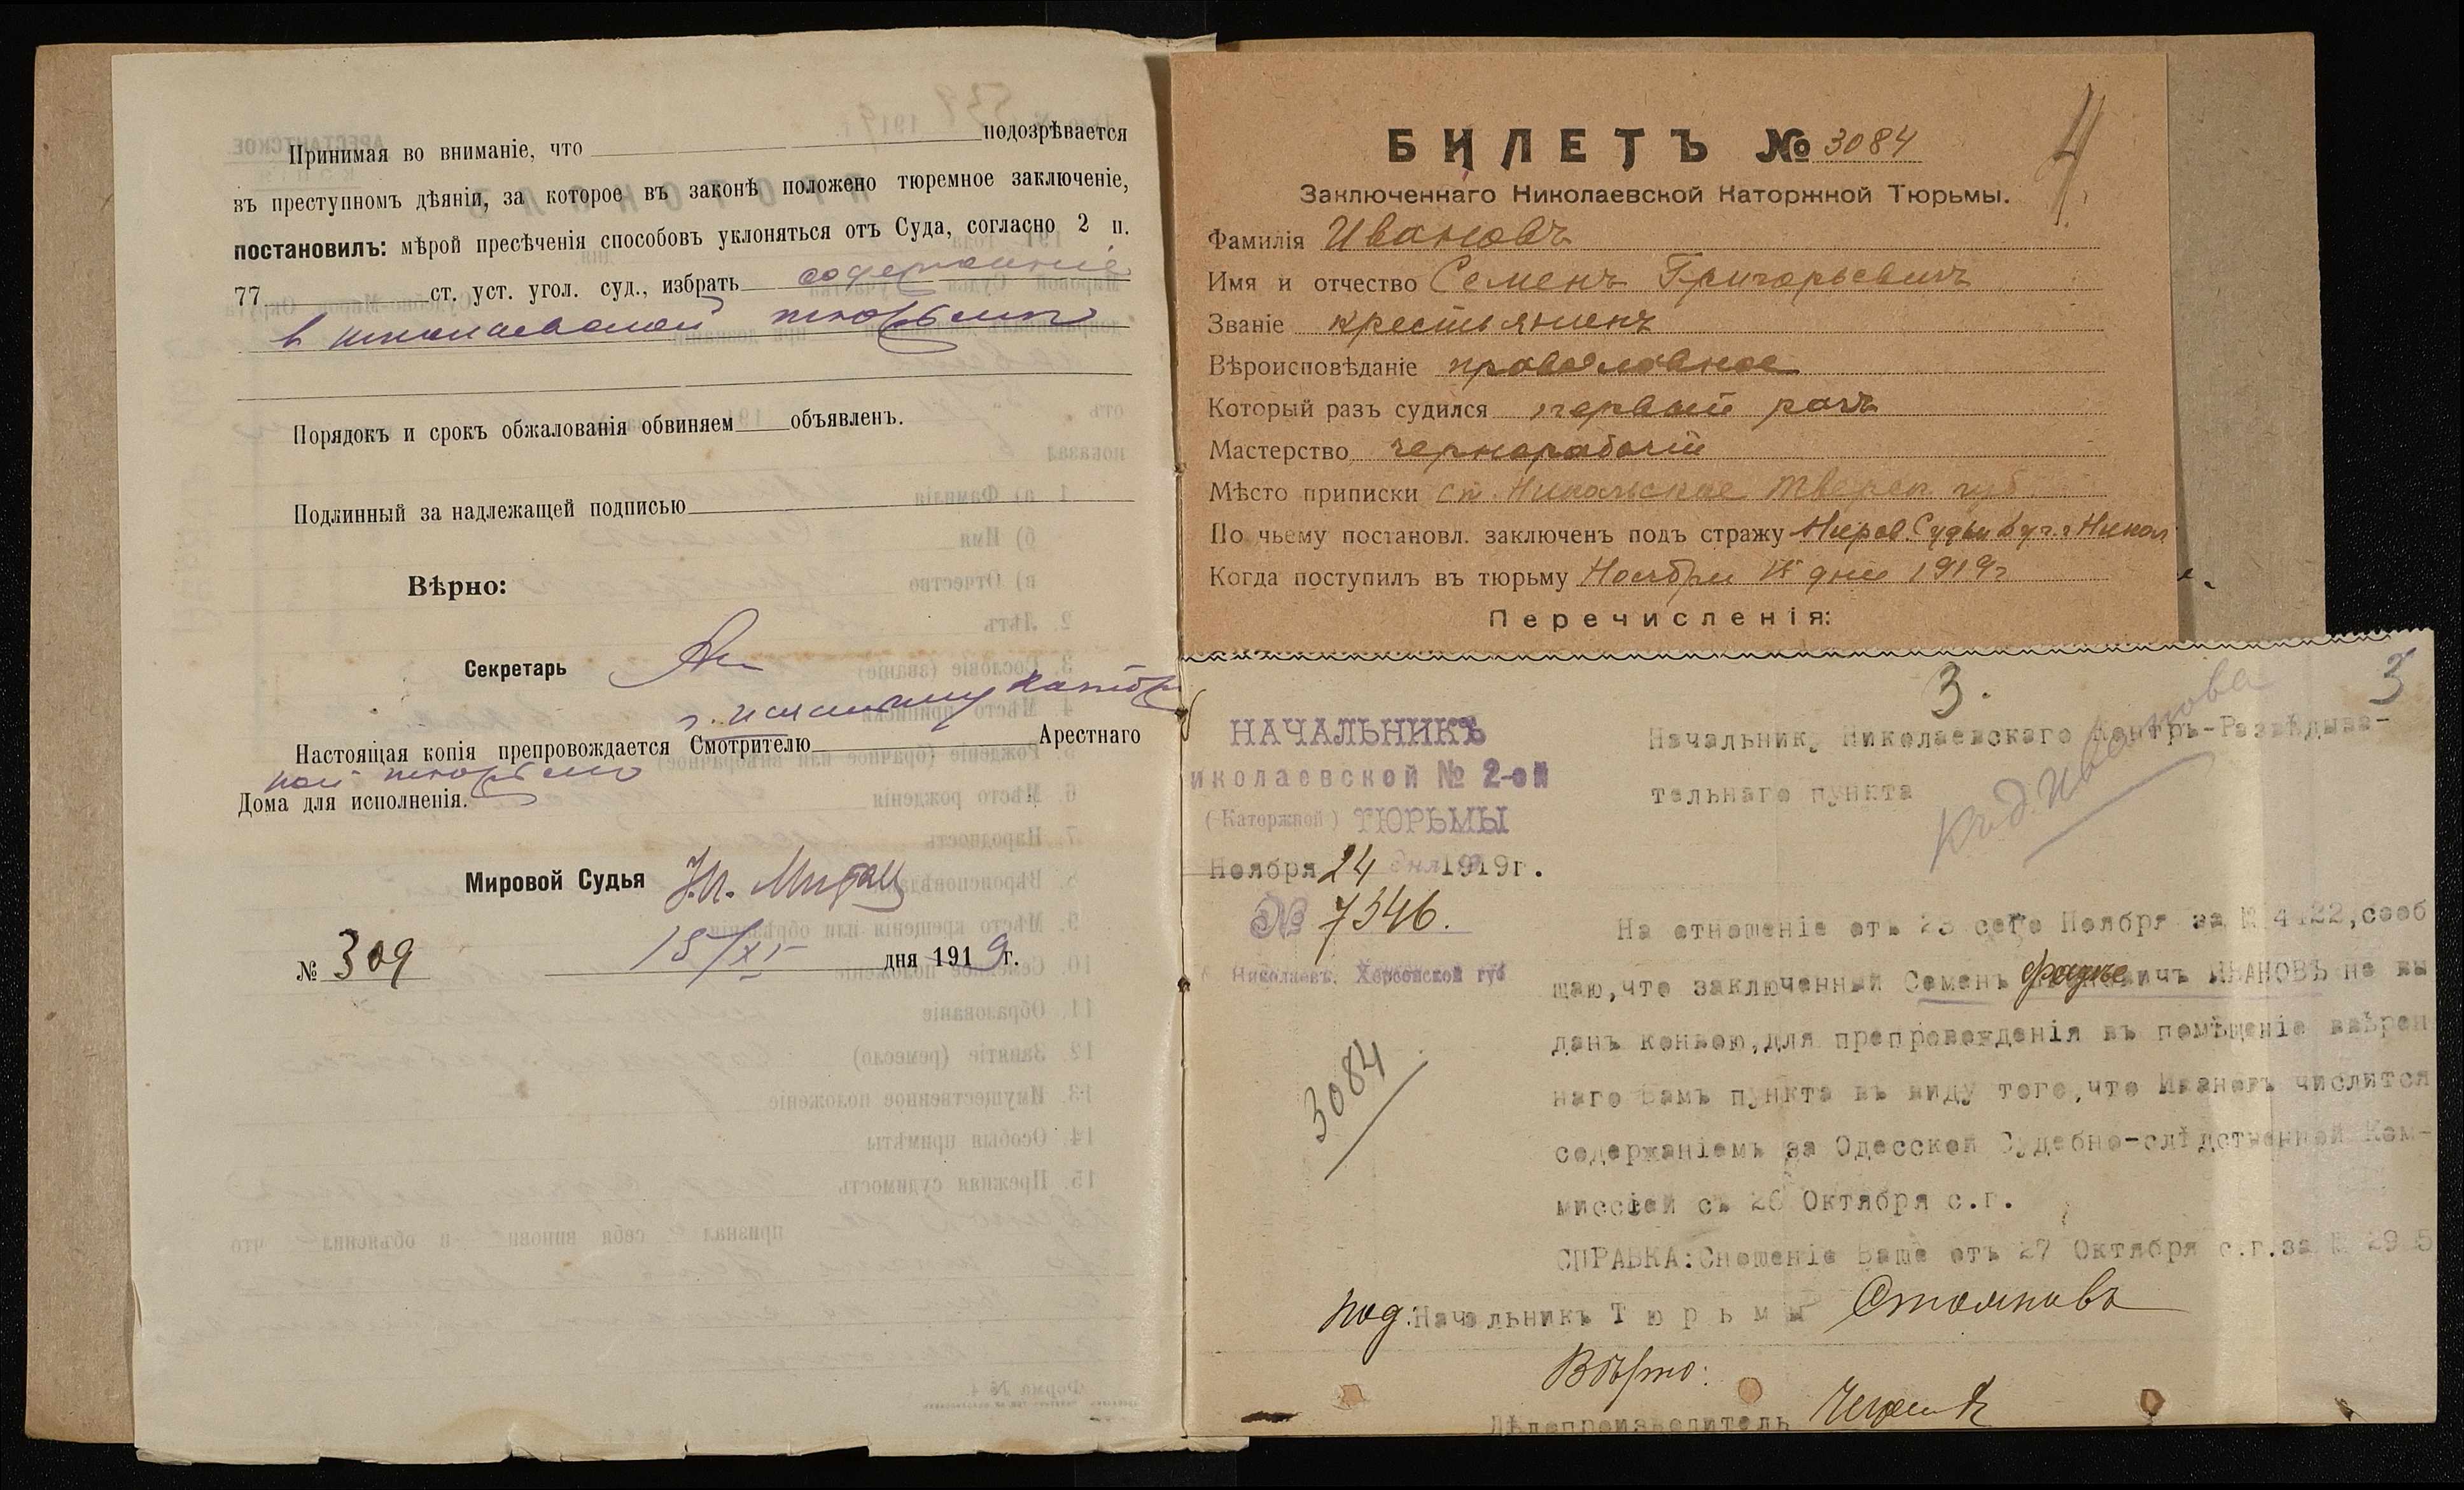 Принимая во вниманіе, что подозрѣвается
въ преступномъ дѣяніи, за которое въ законѣ положено тюремное заключеніе,
постановилъ: мѣрой пресѣченія способовъ уклоняться отъ Суда, согласно 2 п.
77 ст. уст. угол. суд., избрать содержаніе
в николаевской тюрьмѣ
Порядокъ и срокъ обжалованія обвиняем объявленъ.
Подлинный за надлежащей подписью
Вѣрно:
Секретарь
г. начальнику каторж
Настоящая копія препровождается Смотрителю Арестнаго
ной тюрьмы
Дома для исполненія.
Мировой Судья
№ 309 15/XI дня 1919г.
БИЛЕТЪ № 3084
4
Заключеннаго Николаевской Каторжной Тюрьмы.
Фамилія Ивановъ
Имя и отчество Семенъ Григорьевичъ
Званіе крестьянинъ
Вѣроисповѣданіе православное
Который разъ судился первый разъ
Мастерство чернорабочій
Мѣсто приписки ст. Никольское Тверск. губ.
По чьему постановл. заключенъ подъ стражу Миров. Судьи 6 уч. г Никол
Когда поступилъ въ тюрьму Ноября 15 дня 1919г
Перечисленія:
3. 3
НАЧАЛЬНИКЪ
иколаевской № 2-ой
(Каторжной) ТЮРЬМЫ
Ноября 24 дня 1919г.
№ 7346.
Николаевъ, Херсонской губ
3084
Начальнику Николаевскаго Контръ-Развѣдыва-
тельнаго пункта
Къ д. Иванова
На отношеніе отъ 23 сего Ноября за № 4422, сооб
щаю, что заключенный Семенъ ИВАНОВЪ не вы
данъ конвою, для препровожденія въ помѣщеніе ввѣрен
наго Вамъ пункта въ виду того, что Ивановъ числится
содержаніемъ за Одесской Судебно-слѣдственной Ком-
миссіей съ 26 Октября с.г.
СПРАВКА: Сношеніе Ваше отъ 27 Октября с.г. за №
под: Начальникъ Тюрьмы Стояновъ
Вѣрно:
Дѣлопроизводитель